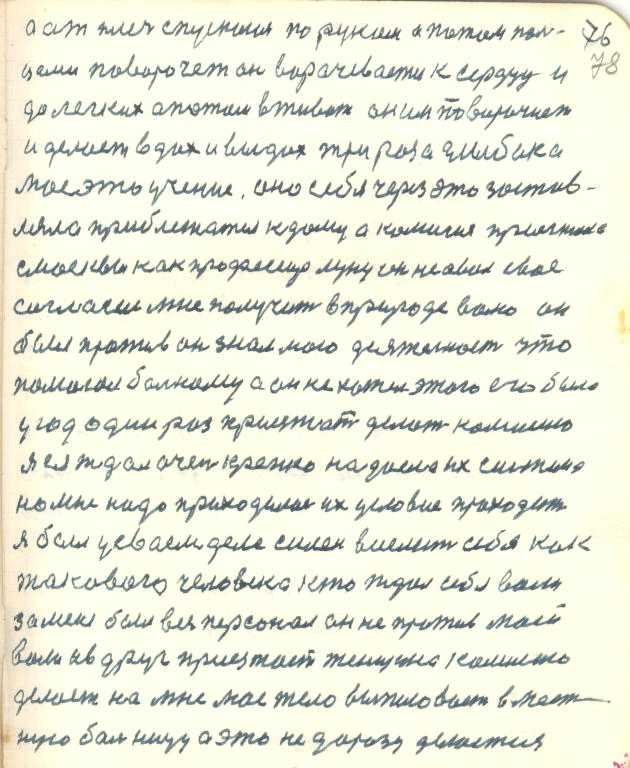 а от плеч спускония по рукам а потом пол- 76
цами поворочет он ворачивается к сердцу и 78
до легких а потом в живот он им поворочиет
и делоет вдох и выдох три роза глибока
мое это учение, оно себя через это зостов-
ляла приблежатся к дому а комисия приезжала
с москвы как профессор лунц он не овол свое
согласие мне получит в природе волю он
был против он знал мого деятелност что
помогол болному а он не хотел этого его было
у год один роз приезжат делот комисию
я ея ждал очен крепко надоела их система
но мне надо приходилос их условие проходит
я был у сваем деле силен виелит себя как
такового человека кто ждал себя воли
замене был вез персонал он не против моей
воли и вдруг приезжает женщина комисию
делоет на мне мое тело выписовает в мест-
ную болницу а это не дорозу делоется